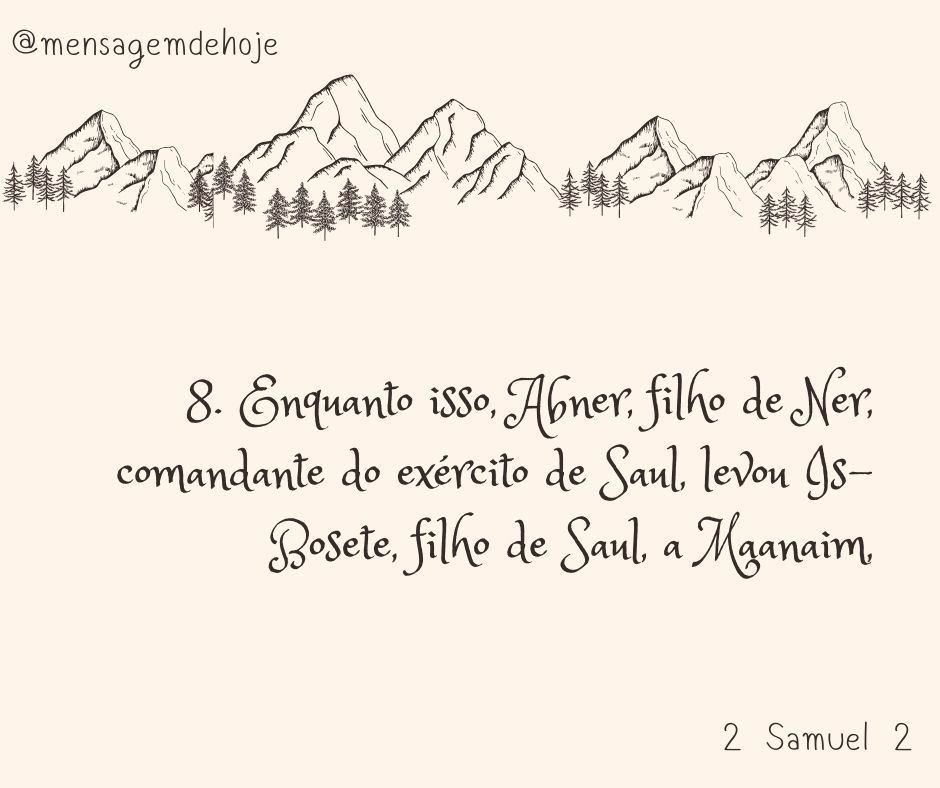 @mensagemdehoje
8. Enquanto isso, Abner, filho de Ner,
comandante do exército de Saul, levou Is-
Bosete, filho de Saul, a Maanaim,
2 Samuel 2